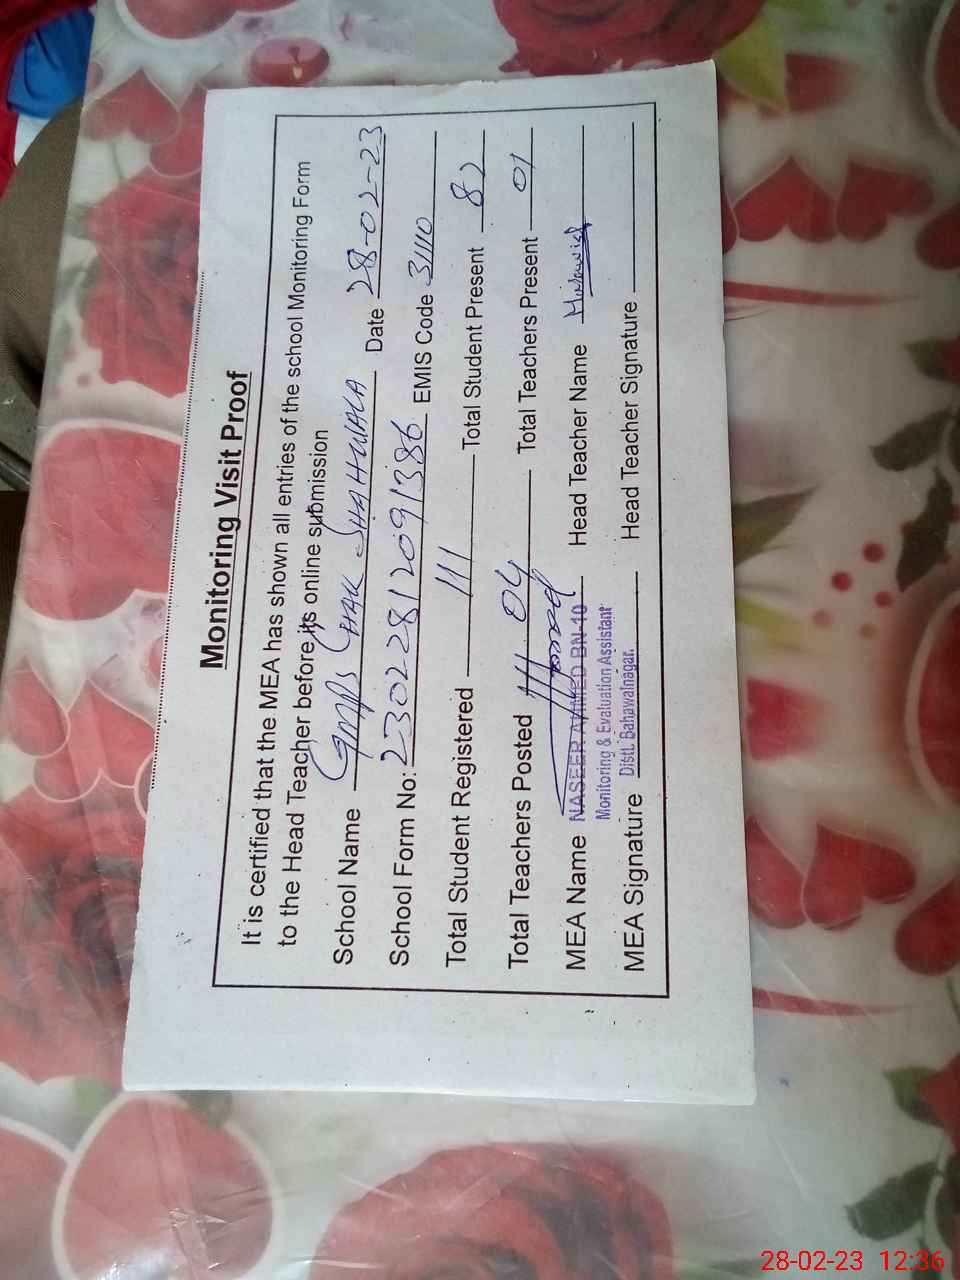 Monitoring Visit Proof
It is certified that the MEA has shown all entries of the school Monitoring Form
to the Head Teacher before its online submission
School Name GMPS CHAK SHAHUWALA Date 28-02-23
School Form No: 230228112091386 EMIS Code 31110
Total Student Registered 111 Total Student Present 82
Total Teachers Posted 04 Total Teachers Present 01
MEA Name NASEER AHMED BN-10 Head Teacher Name
Monitoring & Evaluation Assistant
MEA Signature Distt. Bahawalnagar. Head Teacher Signature
28-02-23 12:36